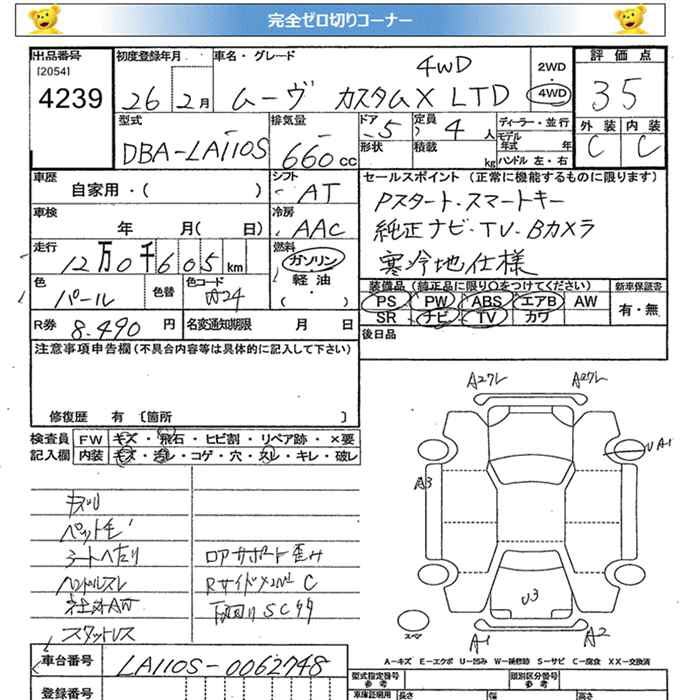 完全ゼロ切りコーナー
出品番号 初度登録年月 車名・グレード 2WD 評価点
[2054] 4WD
4239 26年 2月 ムーヴ カスタムX LTD 4WD 35
型式 排気量 ドア 5 定員 4人 ディーラー・並行 外装 内装
DBA-LA110S 660cc 形状 積載 kg モデル年式 年 C C
ハンドル 左・右
車歴 シフト セールスポイント(正常に機能するものに限ります)
自家用・( ) AT Pスタート・スマートキー
車検 冷房 純正ナビ・TV・Bカメラ
年 月( 日) AAC 寒冷地仕様
走行 燃料
12万0千605km ガソリン
色 色替 色コード 軽油 装備品(純正品に限り○をつけてください) 新車保証書
パール W24 ・( ) PS PW ABS エアB AW 有・無
R券 8.490円 名変通知期限 月 日 SR ナビ TV カワ
注意事項申告欄(不具合内容等は具体的に記入して下さい) 後日品
修復歴 有 [箇所 ]
検査員 FW キズ・飛石・ヒビ割・リペア跡・×要
記入欄 内装 キズ・汚レ・コゲ・穴・スレ・キレ・破レ
A2クレ A2クレ
UA1
A3
キズU
ペット毛
シートへたり ロアサポート歪み
ハンドルスレ RサイドメンバーC
社外AW 下回りSCサ
スタットレス
U3
スペア
A1 A2
車台番号 LA110S-0062748
A－キズ E－エクボ U－凹み W－補修跡 S－サビ C－腐食 XX－交換済
登録番号
型式指定番号 参考 類別区分番号 参考
車庫証明用 長さ 幅 高さ